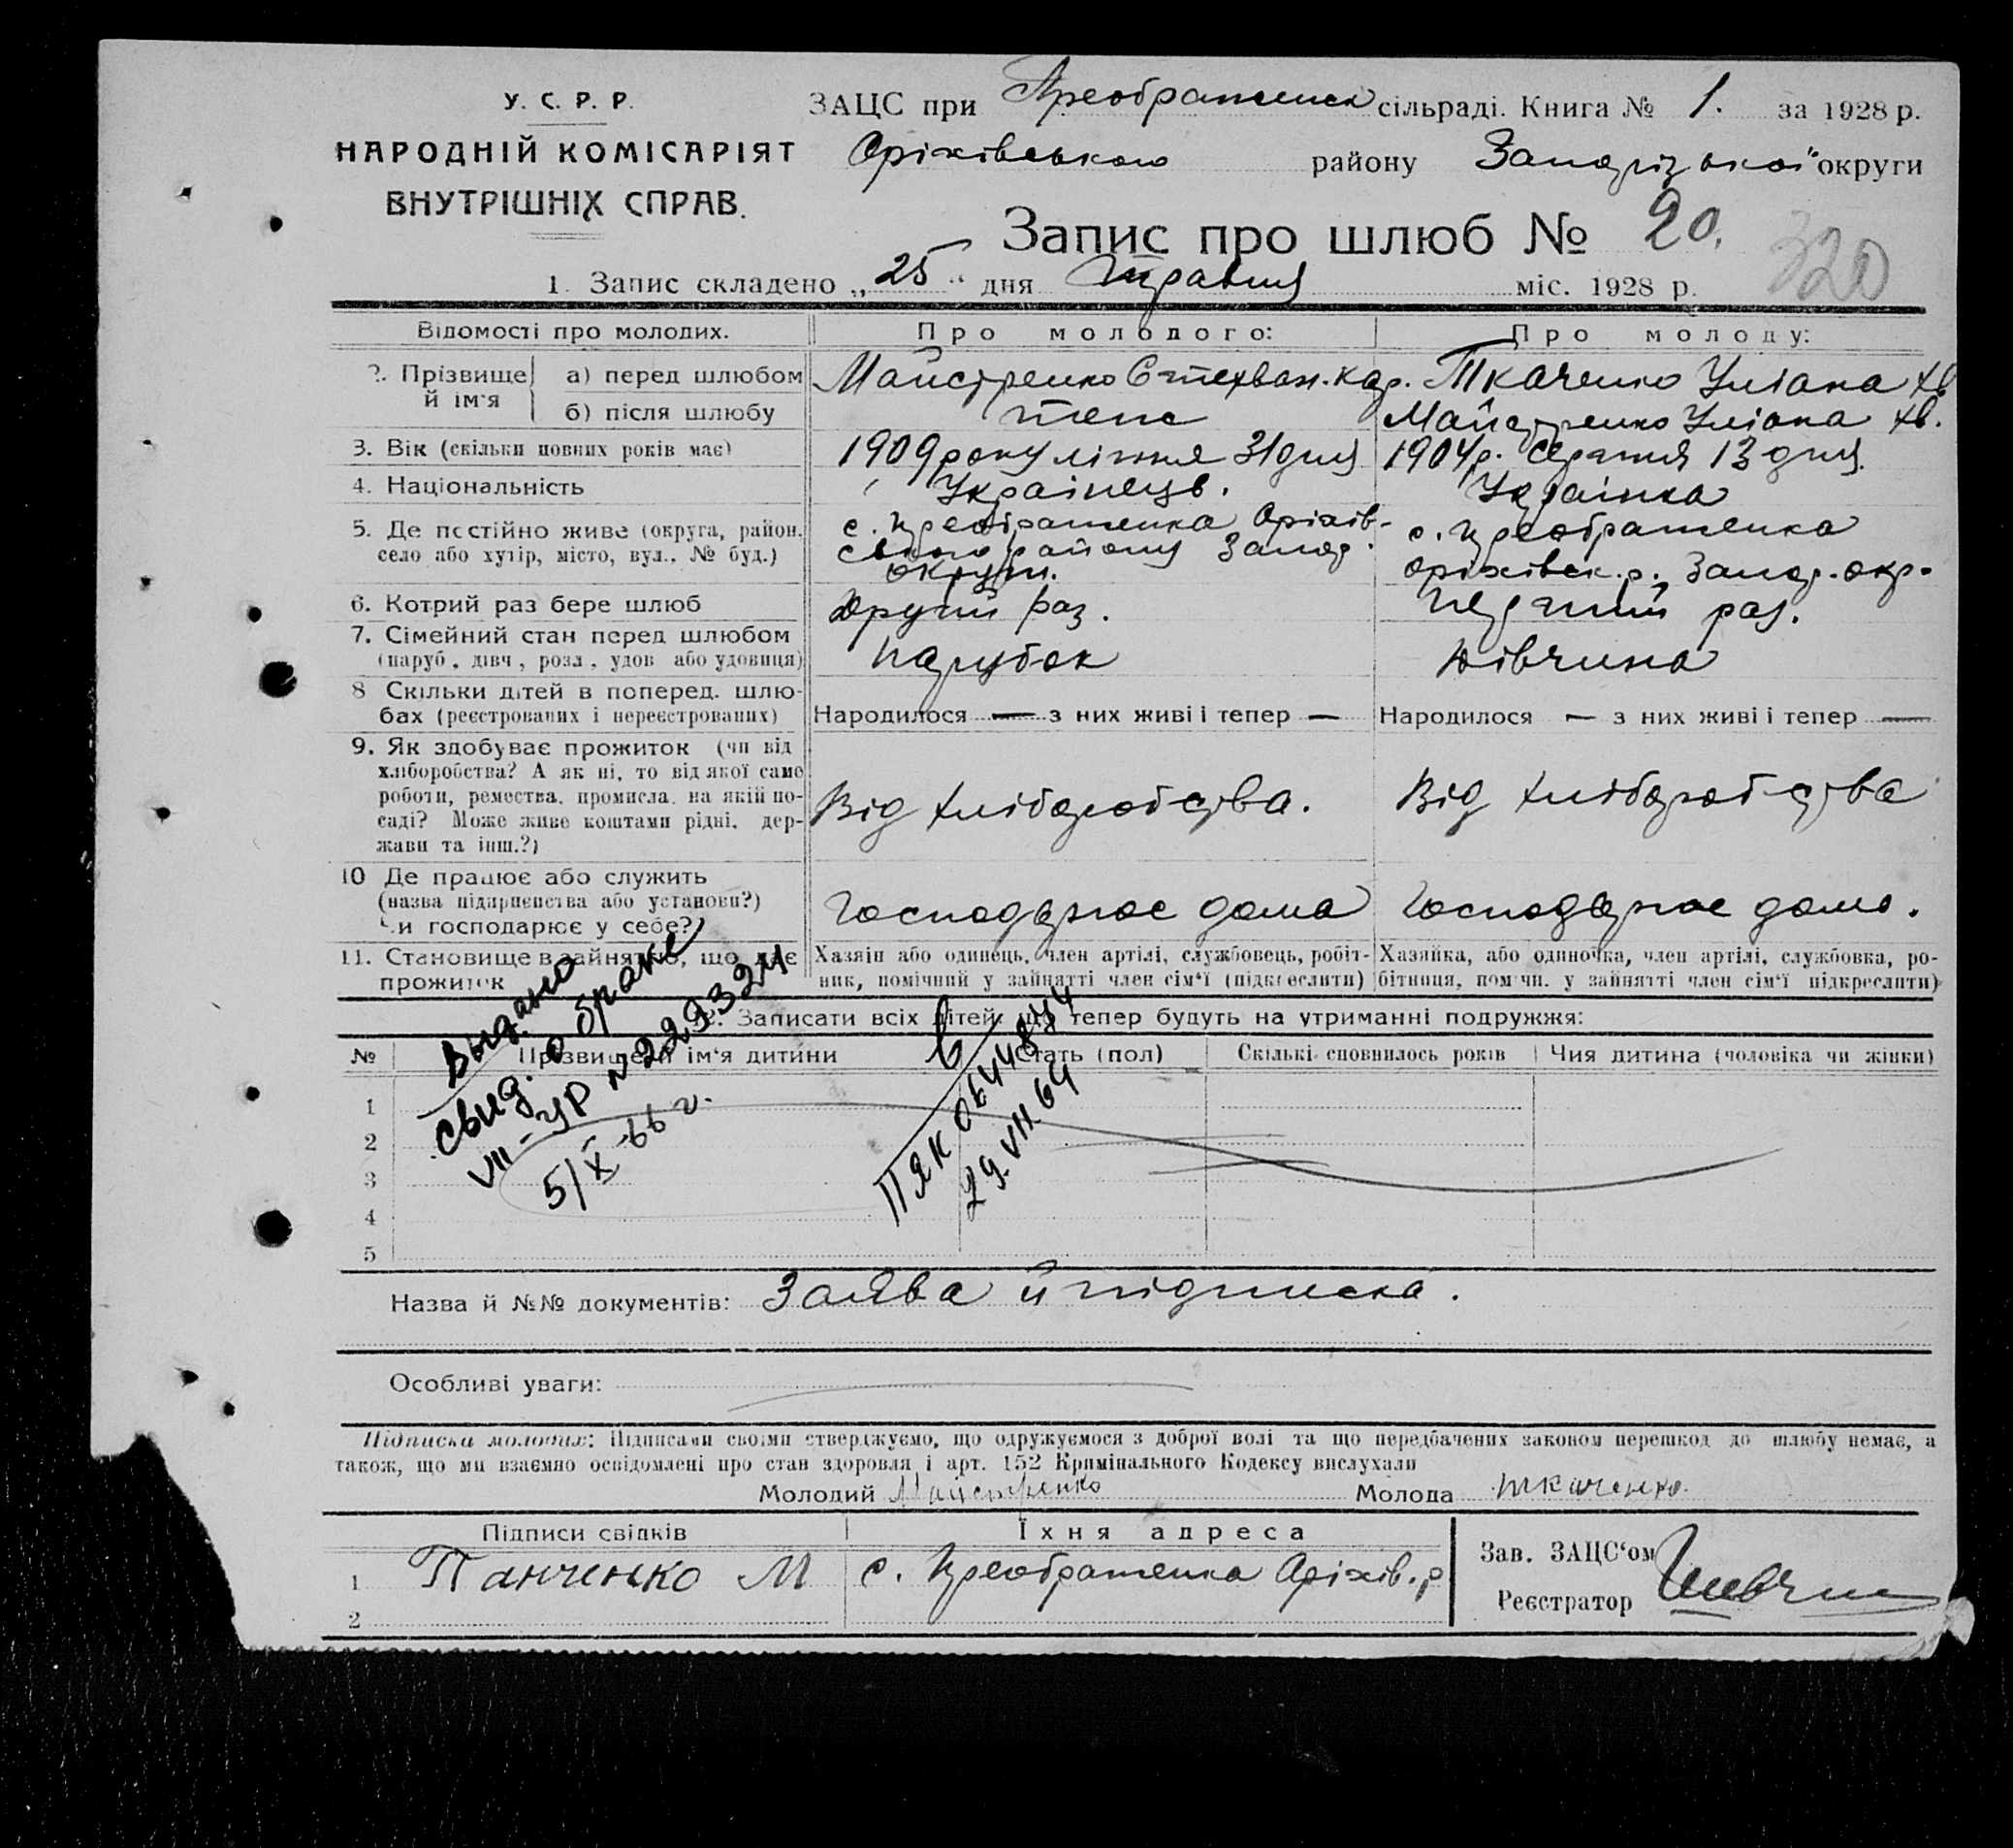 У. С. Р. Р.
НАРОДНІЙ КОМІСАРІЯТ
ВНУТРІШНІХ СПРАВ.
ЗАЦС при Преображенск сільраді. Книга № 1. за 1928 р.
Оріхівського району Запорізької округи
Запис про шлюб № 20.
320
1. Запис складено „25“ дня травня міс. 1928 р.
Відомості про молодих. Про молодого: Про молоду:
2. Прізвище й ім'я а) перед шлюбом Майстренко Стехван. Кар. Ткаченко Уліана Хв
б) після шлюбу теж Майстренко Уліана Хв.
3. Вік (скільки повних років має) 1909 року липня 31 дня 1904 р. серпня 13 дня
4. Національність Українець. Українка
5. Де постійно живе (округа, район, с. Преображенка Оріхів- с. Преображенка
село або хутір, місто, вул., № буд.) ського району Запор. округи. Оріхівск. р. Запор. окр.
6. Котрий раз бере шлюб Другий раз. Перший раз.
7. Сімейний стан перед шлюбом парубок дівчина
(паруб., дівч., розл., удов. або удовиця)
8 Скільки дітей в поперед. шлю- Народилося — з них живі і тепер — Народилося — з них живі і тепер —
бах (реєстрованих і нереєстрованих)
9. Як здобуває прожиток (чи від
хліборобства? А як ні, то від якої саме
роботи, ремества, промисла, на якій по- Від хліборобства. Від хліборобства
саді? Може живе коштами рідні, дер-
жави та інш.?)
10 Де працює або служить
(назва підприємства або установи?) Господарює дома Господарює дома.
Чи господарює у себе?
11. Становище в зайняттю, що дає Хазяїн або одинець, член артілі, службовець, робіт- Хазяйка, або одиночка, член артілі, службовка, ро-
прожиток ник, помічний у зайнятті член сім'ї (підкреслити) бітниця, помічн. у зайнятті член сім'ї підкреслити)
12. Записати всіх дітей, що тепер будуть на утриманні подружжя:
№ Прізвище й ім'я дитини Стать (пол) Скількі сповнилось років Чия дитина (чоловіка чи жінки)
1
2
3
4
5
Выдано
свид. о браке
VII-УР № 2293324
5/X-66 г.
В
ПЯК 0644844
29.VII.64
Назва й №№ документів: Заява й підписка.
Особливі уваги:
Підписка молодих: Підписами своїми стверджуємо, що одружуємося з доброї волі та що передбачених законом перешкод до шлюбу немає, а
також, що ми взаємно освідомлені про стан здоровля і арт. 152 Кримінального Кодексу вислухали
Молодий Майстренко Молода Ткаченко
Підписи свідків Їхня адреса
1 Панченко М с. Преображенка Оріхів. р
2
Зав. ЗАЦС'ом
Реєстратор